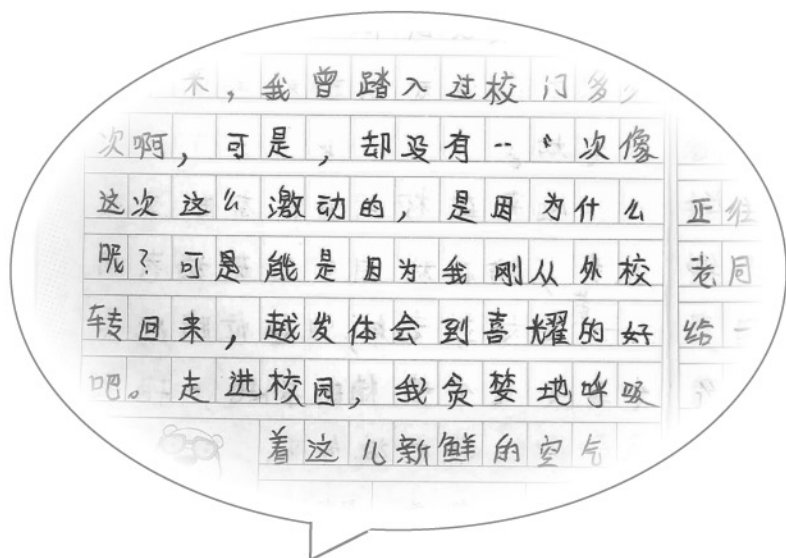 来，我曾踏入过校门多少
次啊，可是，却没有一次像
这次这么激动的，是因为什么
呢？可是能是因为我刚从外校
转回来，越发体会到喜耀的好
吧。走进校园，我贪婪地呼吸
着这儿新鲜的空气
正
老同
给一